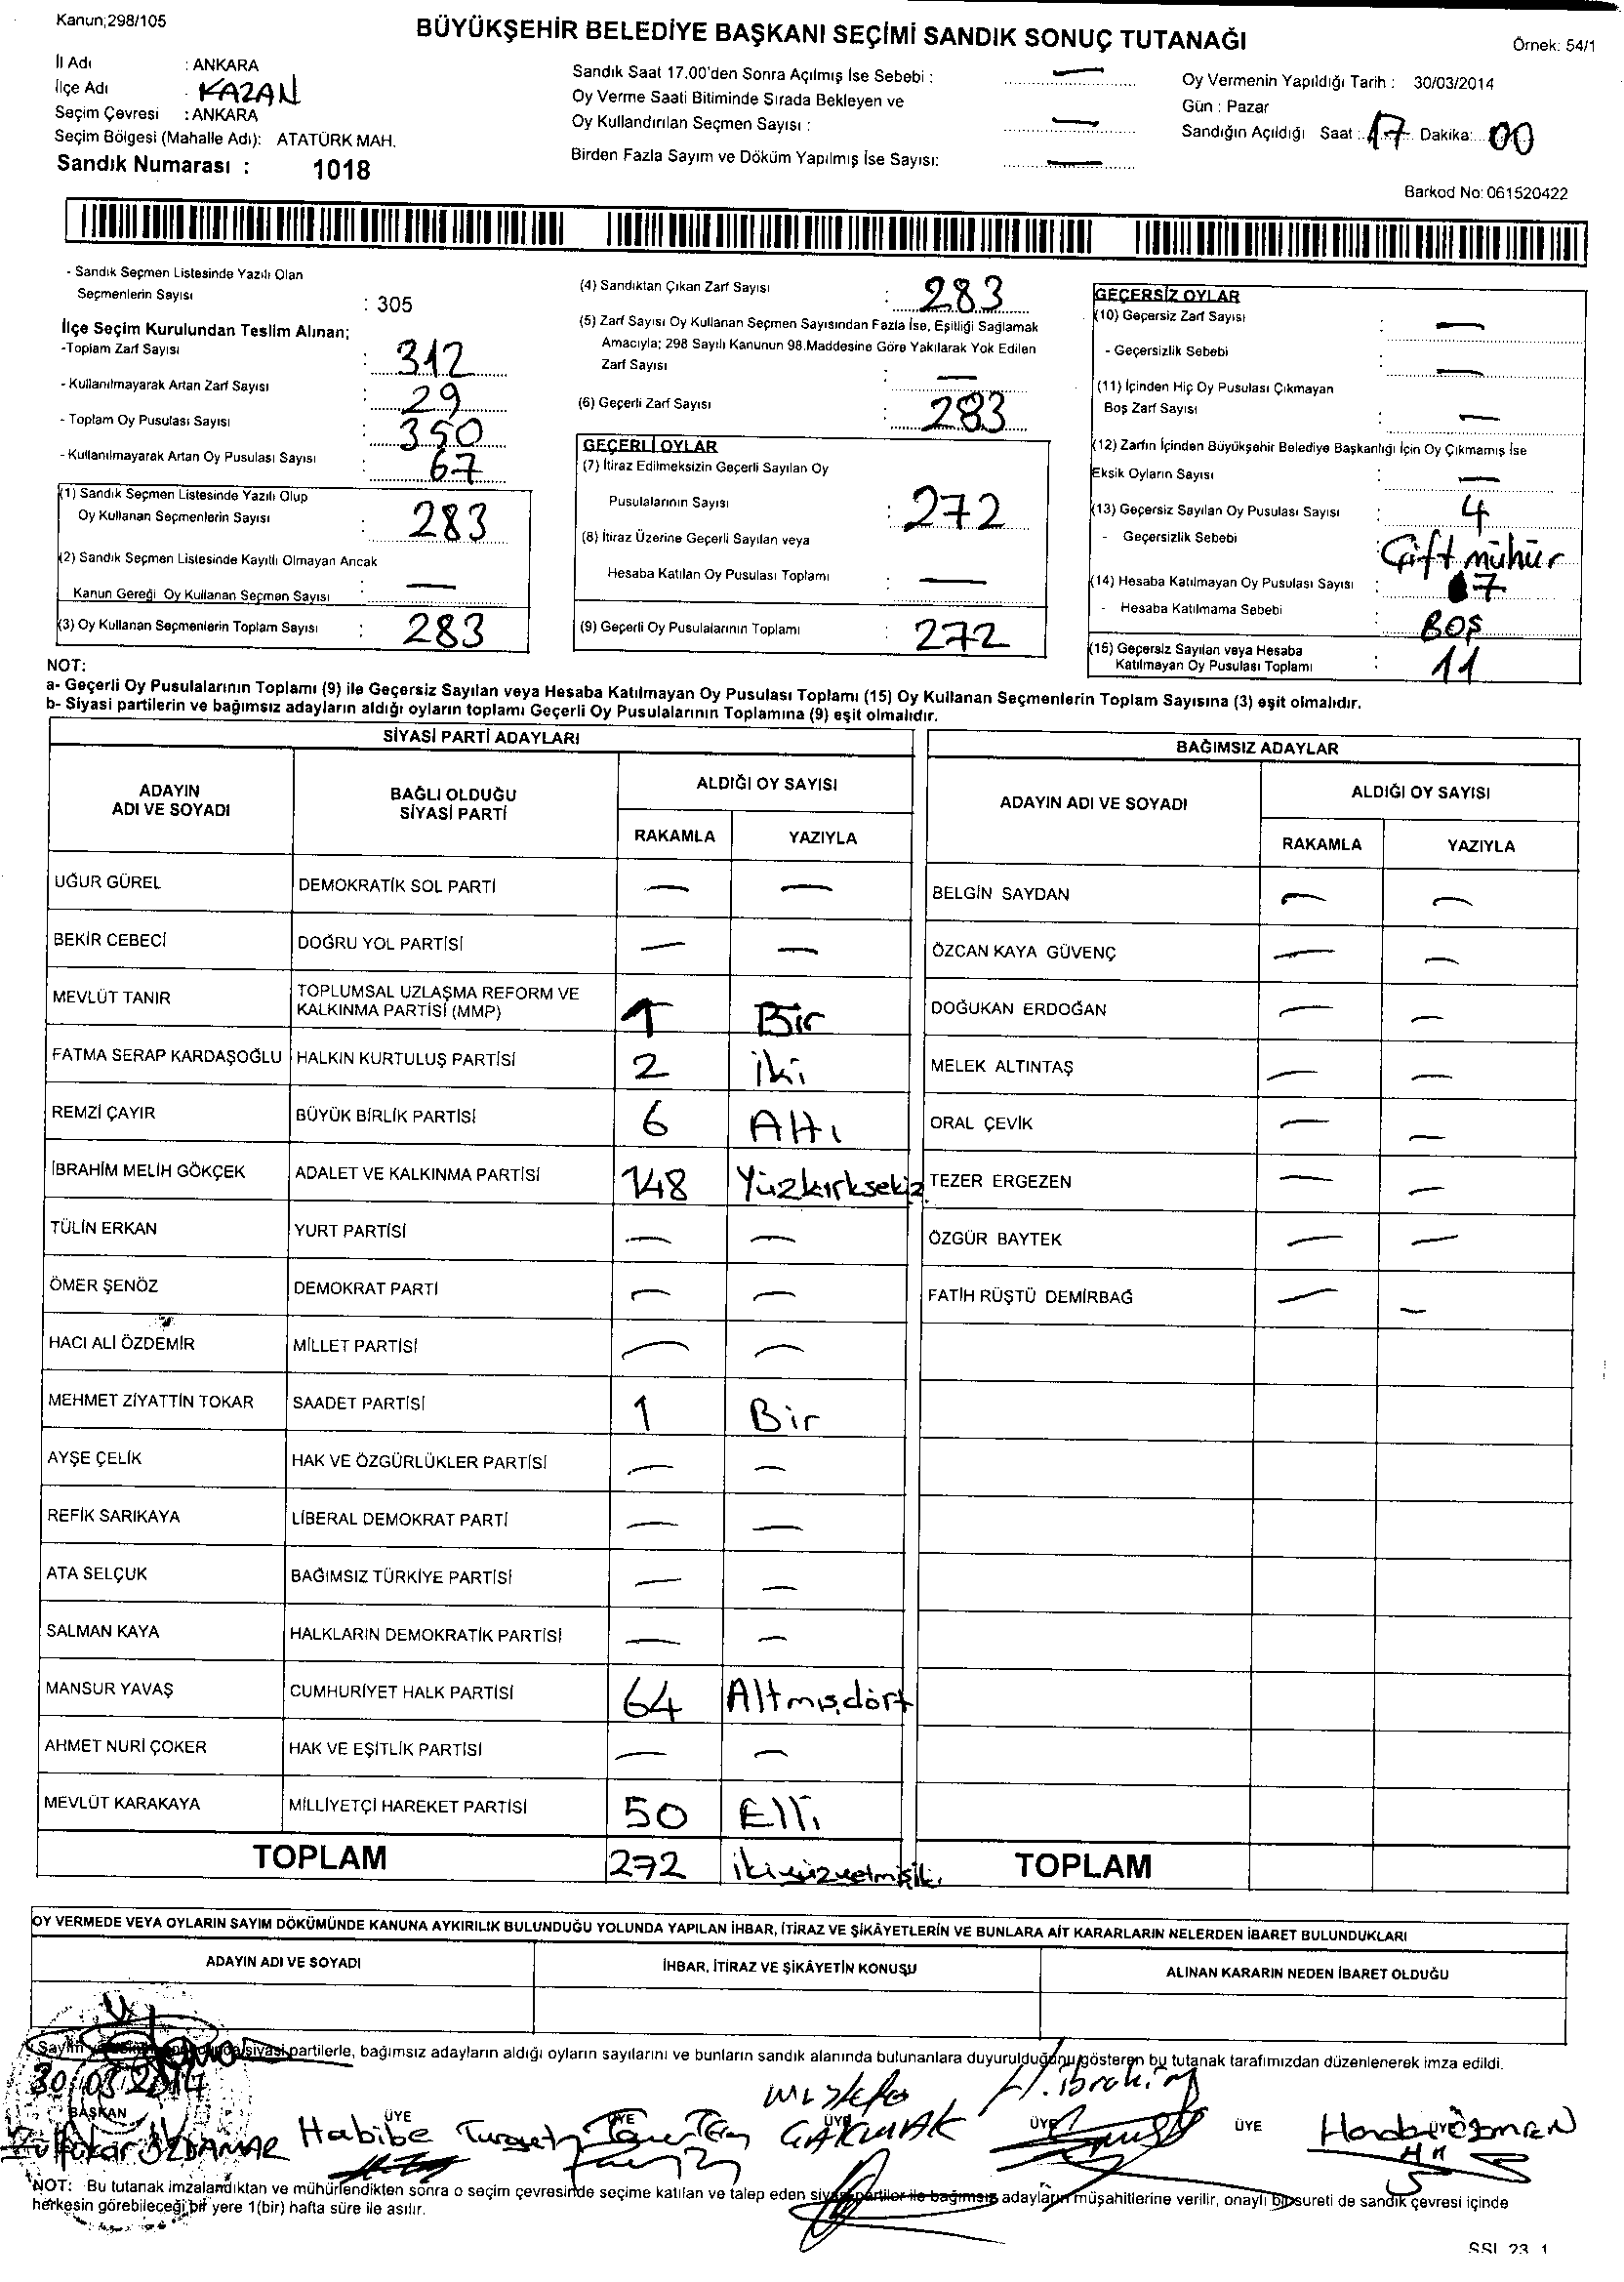 Kanun;298/105
BÜYÜKŞEHİR BELEDİYE BAŞKANI SEÇİMİ SANDIK SONUÇ TUTANAĞI
Örnek: 54/1
İl Adı : ANKARA
İlçe Adı : KAZAN
Seçim Çevresi : ANKARA
Seçim Bölgesi (Mahalle Adı): ATATÜRK MAH.
Sandık Numarası : 1018
Sandık Saat 17.00'den Sonra Açılmış İse Sebebi : —
Oy Verme Saati Bitiminde Sırada Bekleyen ve
Oy Kullandırılan Seçmen Sayısı : —
Birden Fazla Sayım ve Döküm Yapılmış İse Sayısı: —
Oy Vermenin Yapıldığı Tarih : 30/03/2014
Gün : Pazar
Sandığın Açıldığı Saat : 17 Dakika: 00
Barkod No: 061520422
- Sandık Seçmen Listesinde Yazılı Olan
Seçmenlerin Sayısı : 305
İlçe Seçim Kurulundan Teslim Alınan;
-Toplam Zarf Sayısı : 312
- Kullanılmayarak Artan Zarf Sayısı : 29
- Toplam Oy Pusulası Sayısı : 350
- Kullanılmayarak Artan Oy Pusulası Sayısı : 67
(1) Sandık Seçmen Listesinde Yazılı Olup
Oy Kullanan Seçmenlerin Sayısı : 283
(2) Sandık Seçmen Listesinde Kayıtlı Olmayan Ancak
Kanun Gereği Oy Kullanan Seçmen Sayısı : —
(3) Oy Kullanan Seçmenlerin Toplam Sayısı : 283
(4) Sandıktan Çıkan Zarf Sayısı : 283
(5) Zarf Sayısı Oy Kullanan Seçmen Sayısından Fazla İse, Eşitliği Sağlamak
Amacıyla; 298 Sayılı Kanunun 98.Maddesine Göre Yakılarak Yok Edilen
Zarf Sayısı : —
(6) Geçerli Zarf Sayısı : 283
GEÇERLİ OYLAR
(7) İtiraz Edilmeksizin Geçerli Sayılan Oy
Pusulalarının Sayısı : 272
(8) İtiraz Üzerine Geçerli Sayılan veya
Hesaba Katılan Oy Pusulası Toplamı : —
(9) Geçerli Oy Pusulalarının Toplamı : 272
GEÇERSİZ OYLAR
(10) Geçersiz Zarf Sayısı : —
- Geçersizlik Sebebi : —
(11) İçinden Hiç Oy Pusulası Çıkmayan
Boş Zarf Sayısı : —
(12) Zarfın İçinden Büyükşehir Belediye Başkanlığı İçin Oy Çıkmamış İse
Eksik Oyların Sayısı : —
(13) Geçersiz Sayılan Oy Pusulası Sayısı : 4
- Geçersizlik Sebebi : Çift mühür
(14) Hesaba Katılmayan Oy Pusulası Sayısı : 7
- Hesaba Katılmama Sebebi : BOŞ
(15) Geçersiz Sayılan veya Hesaba
Katılmayan Oy Pusulası Toplamı : 11
NOT:
a- Geçerli Oy Pusulalarının Toplamı (9) ile Geçersiz Sayılan veya Hesaba Katılmayan Oy Pusulası Toplamı (15) Oy Kullanan Seçmenlerin Toplam Sayısına (3) eşit olmalıdır.
b- Siyasi partilerin ve bağımsız adayların aldığı oyların toplamı Geçerli Oy Pusulalarının Toplamına (9) eşit olmalıdır.
SİYASİ PARTİ ADAYLARI
ADAYIN ADI VE SOYADI BAĞLI OLDUĞU SİYASİ PARTİ ALDIĞI OY SAYISI
RAKAMLA YAZIYLA
UĞUR GÜREL DEMOKRATİK SOL PARTİ — —
BEKİR CEBECİ DOĞRU YOL PARTİSİ — —
MEVLÜT TANIR TOPLUMSAL UZLAŞMA REFORM VE KALKINMA PARTİSİ (MMP) 1 Bir
FATMA SERAP KARDAŞOĞLU HALKIN KURTULUŞ PARTİSİ 2 iki
REMZİ ÇAYIR BÜYÜK BİRLİK PARTİSİ 6 Altı
İBRAHİM MELİH GÖKÇEK ADALET VE KALKINMA PARTİSİ 148 Yüzkırksekiz
TÜLİN ERKAN YURT PARTİSİ — —
ÖMER ŞENÖZ DEMOKRAT PARTİ — —
HACI ALİ ÖZDEMİR MİLLET PARTİSİ — —
MEHMET ZİYATTİN TOKAR SAADET PARTİSİ 1 Bir
AYŞE ÇELİK HAK VE ÖZGÜRLÜKLER PARTİSİ — —
REFİK SARIKAYA LİBERAL DEMOKRAT PARTİ — —
ATA SELÇUK BAĞIMSIZ TÜRKİYE PARTİSİ — —
SALMAN KAYA HALKLARIN DEMOKRATİK PARTİSİ — —
MANSUR YAVAŞ CUMHURİYET HALK PARTİSİ 64 Altmışdört
AHMET NURİ ÇOKER HAK VE EŞİTLİK PARTİSİ — —
MEVLÜT KARAKAYA MİLLİYETÇİ HAREKET PARTİSİ 50 Elli
TOPLAM 272 ikiyüzyetmişiki
BAĞIMSIZ ADAYLAR
ADAYIN ADI VE SOYADI ALDIĞI OY SAYISI
RAKAMLA YAZIYLA
BELGİN SAYDAN — —
ÖZCAN KAYA GÜVENÇ — —
DOĞUKAN ERDOĞAN — —
MELEK ALTINTAŞ — —
ORAL ÇEVİK — —
TEZER ERGEZEN — —
ÖZGÜR BAYTEK — —
FATİH RÜŞTÜ DEMİRBAĞ — —
TOPLAM
OY VERMEDE VEYA OYLARIN SAYIM DÖKÜMÜNDE KANUNA AYKIRILIK BULUNDUĞU YOLUNDA YAPILAN İHBAR, İTİRAZ VE ŞİKÂYETLERİN VE BUNLARA AİT KARARLARIN NELERDEN İBARET BULUNDUKLARI
ADAYIN ADI VE SOYADI İHBAR, İTİRAZ VE ŞİKÂYETİN KONUSU ALINAN KARARIN NEDEN İBARET OLDUĞU
Sayım siyasi partilerle, bağımsız adayların aldığı oyların sayılarını ve bunların sandık alanında bulunanlara duyurulduğunu gösteren bu tutanak tarafımızdan düzenlenerek imza edildi.
30/03/2014
BAŞKAN ÜYE ÜYE ÜYE ÜYE ÜYE ÜYE
Zülfikar ÖZDAMAR Habibe Turgut Mustafa ÇAKMAK H. ibrahim
NOT: Bu tutanak imzalandıktan ve mühürlendikten sonra o seçim çevresinde seçime katılan ve talep eden siyasi partiler ile bağımsız adayların müşahitlerine verilir, onaylı bir sureti de sandık çevresi içinde
herkesin görebileceği bir yere 1(bir) hafta süre ile asılır.